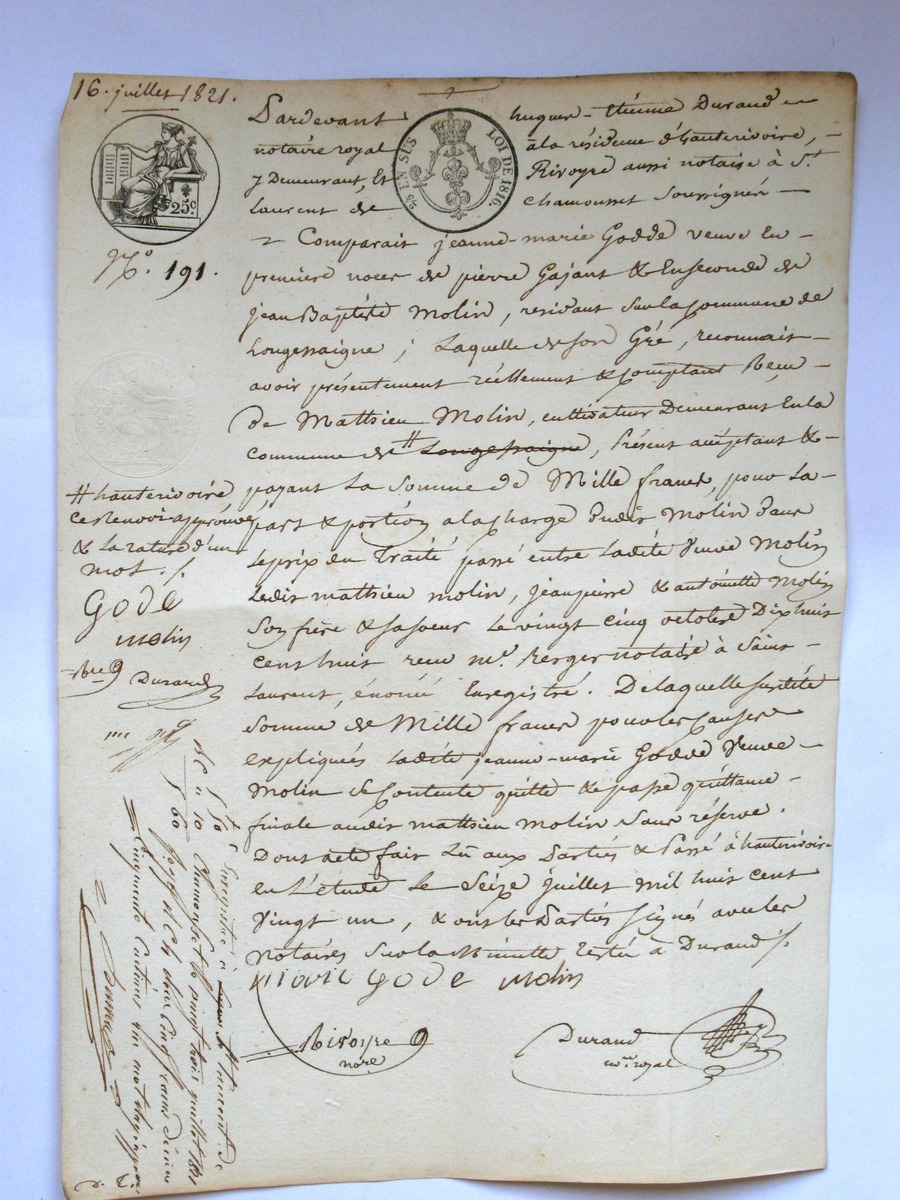 16. juillet 1821.
25 EN SUS LOI DE 1816.
25c.
N.o 191.
Pardevant hugues-étienne Durand
notaire royal à la résidence d'hauterivoire,
y Demeurant, Et Rivoyre aussi notaire à St
Laurent de Chamousset Soussignés
Comparait jeanne-marie Godde veuve En
première noces de pierre Gajant & Ensecondes de
jean Baptiste Molin, residant Sur la Commune de
Longessaigne; Laquelle de Son Gré, reconnait
avoir présentement réellement & Comptant Reçu
de Mathieu Molin, cultivateur Demeurant En la
commune de # Longessaigne, Présent acceptant &
payant La Somme de Mille francs, pour La
part & portion a la Charge Dudit Molin Dans
Le prix du Traité passé entre Ladite Veuve Molin
Ledit mathieu molin, jean pierre & antoinette Molin
Son frère & Sa Soeur Le vingt cinq octobre Dix huit
Cent huit reçu me. Berger notaire à Saint
Laurent, énoncé Enregistré. De laquelle Susdite
Somme de Mille francs pour les Causes
expliquées Ladite jeanne-marie Godde Veuve
Molin Se Contente quitte & passe quittance
finale audit mathieu molin Sans réserve.
Dont acte fait Lu aux Parties & Passé à hauterivoire
En L'étude Le Seize juillet mil huit cent
Vingt un, & ont les Parties Signé avec les
notaires Sur la Minute restée à Durand ./.
marie gode molin
Rivoyre
nore
Durand
nore royal
# hauterivoire
ce renvoi approuvé
& La rature d'un
mot ./.
gode
molin
Rre
Durand
Enregistré à St Laurent de
Chamousset le vingt trois juillet 1821
Reçu cinq francs
cinquante Centimes
5 50